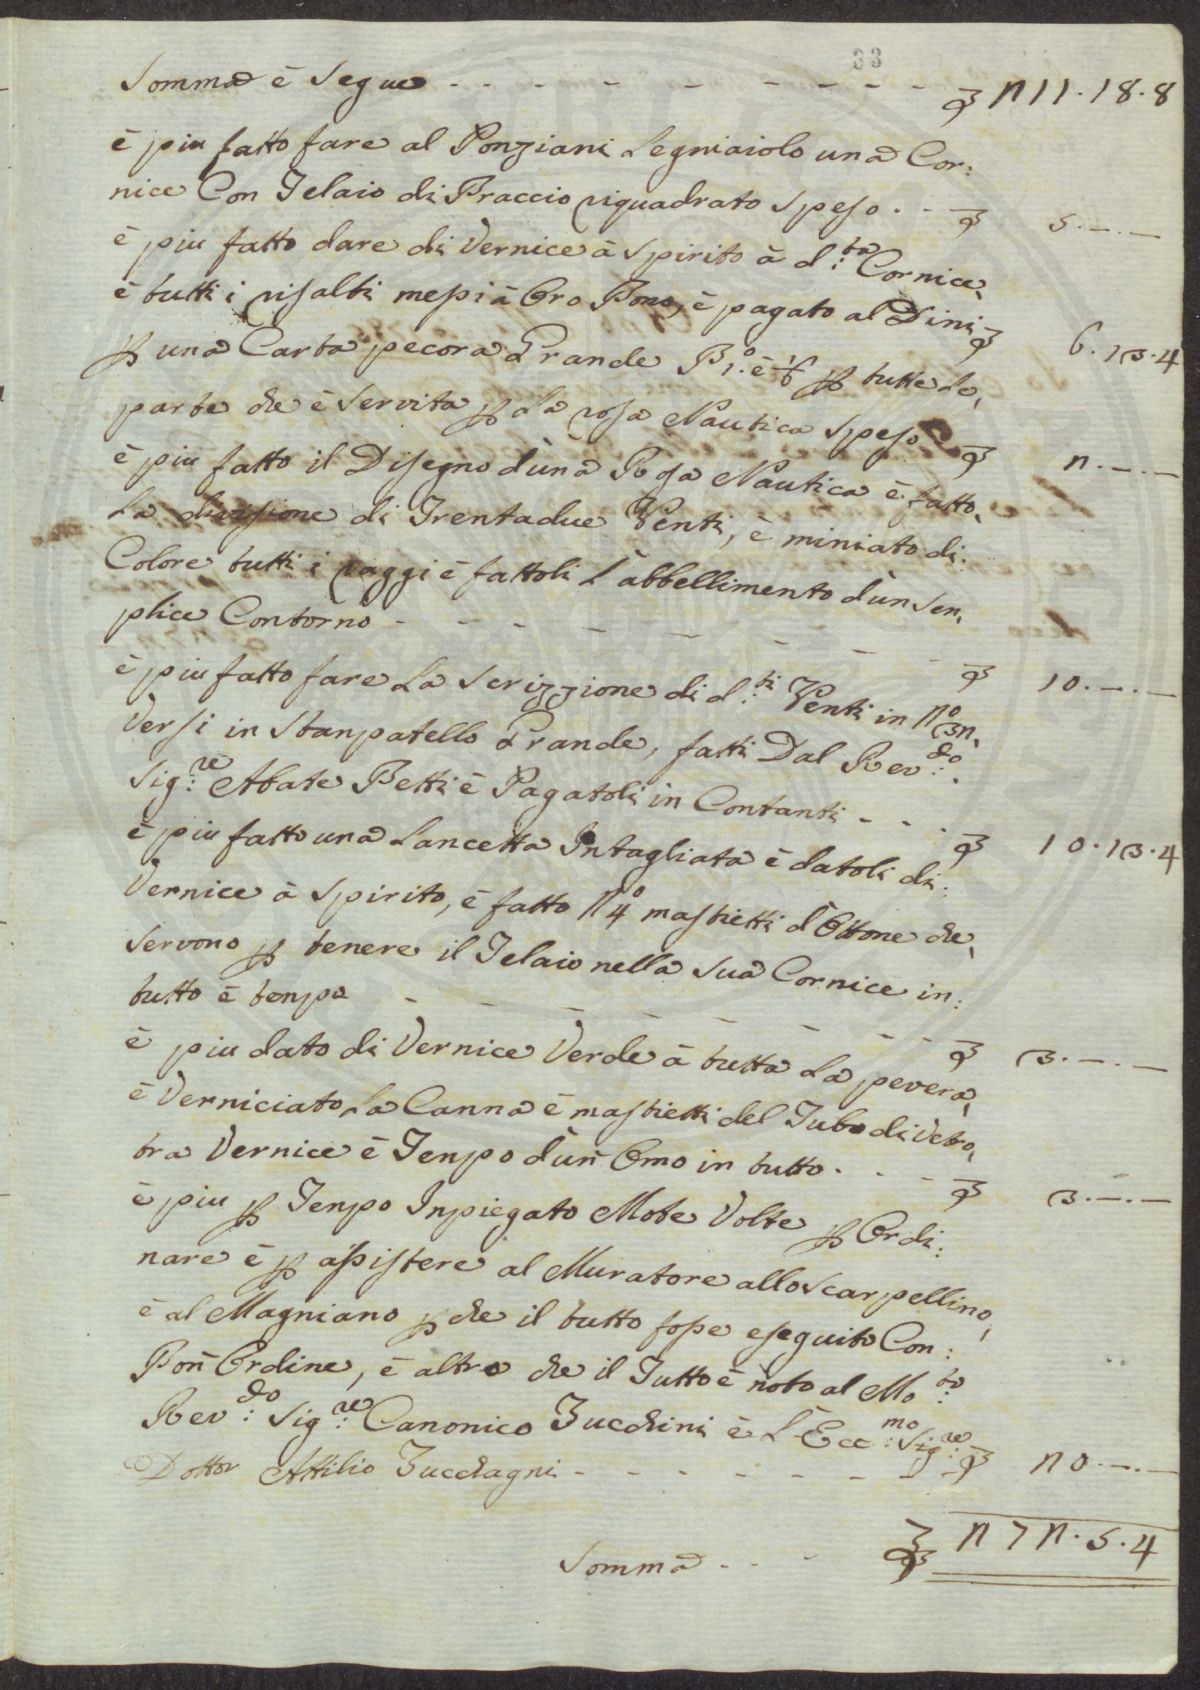 33
Somma è Segue - - - - - - - - ₤ 211.18.8
è piu fatto fare al Ponziani Legniaiolo una Cor:
nice Con Telaio di Braccio riquadrato Speso . - ₤ 5.-.-
è piu fatto dare di Vernice à Spirito à d:ta Cornice,
è tutti i risalti messi à Oro Bono, è pagato al Dini ₤ 6.13.4
p una Carta pecora Grande B 1.o è 1/6 p tutte Le,
parte che è Servita p La rosa Nautica Speso - ₤ 2.-.-
è piu fatto il Disegno d'una Rosa Nautica è fatto,
La divisione di Trentadue Venti, è miniato di:
Colore tutti i raggi è fattoli L'abbellimento d'un Sen,
plice Contorno - - - - - - - - ₤ 10.-.-
è piu fatto fare La Scrizzione di d:ti Venti in N.o 32,
Versi in Stanpatello Grande, fatti Dal Rev:do
Sig:re Abate Betti è Pagatoli in Contanti - - - ₤ 10.13.4
è piu fatto una Lancetta Intagliata è datoli di:
Vernice à Spirito, è fatto N.o 4 mastietti d'Ottone che,
Servono p tenere il Telaio nella Sua Cornice in:
tutto è tenpo - - - - - - - - ₤ 3.-.-
è piu dato di Vernice Verde à tutta La pevera,
è Verniciato La Canna è mastietti del Tubo di Vetro,
tra Vernice è Tenpo d'un Omo in tutto . - - ₤ 3.-.-
è piu p Tenpo Inpiegato Mote Volte p Ordi:
nare è p assistere al Muratore allo Scarpellino,
è al Magniano p che il tutto fosse eseguito Con:
Bon Ordine, è altro che il Tutto è noto al Mo:to
Rev:do Sig:re Canonico Zucchini è L'Ecc:mo Sig:re
Dottor Attilio Zucchagni - - - - - - - ₤ 20.-.-
Somma - - - ₤ 272.5.4